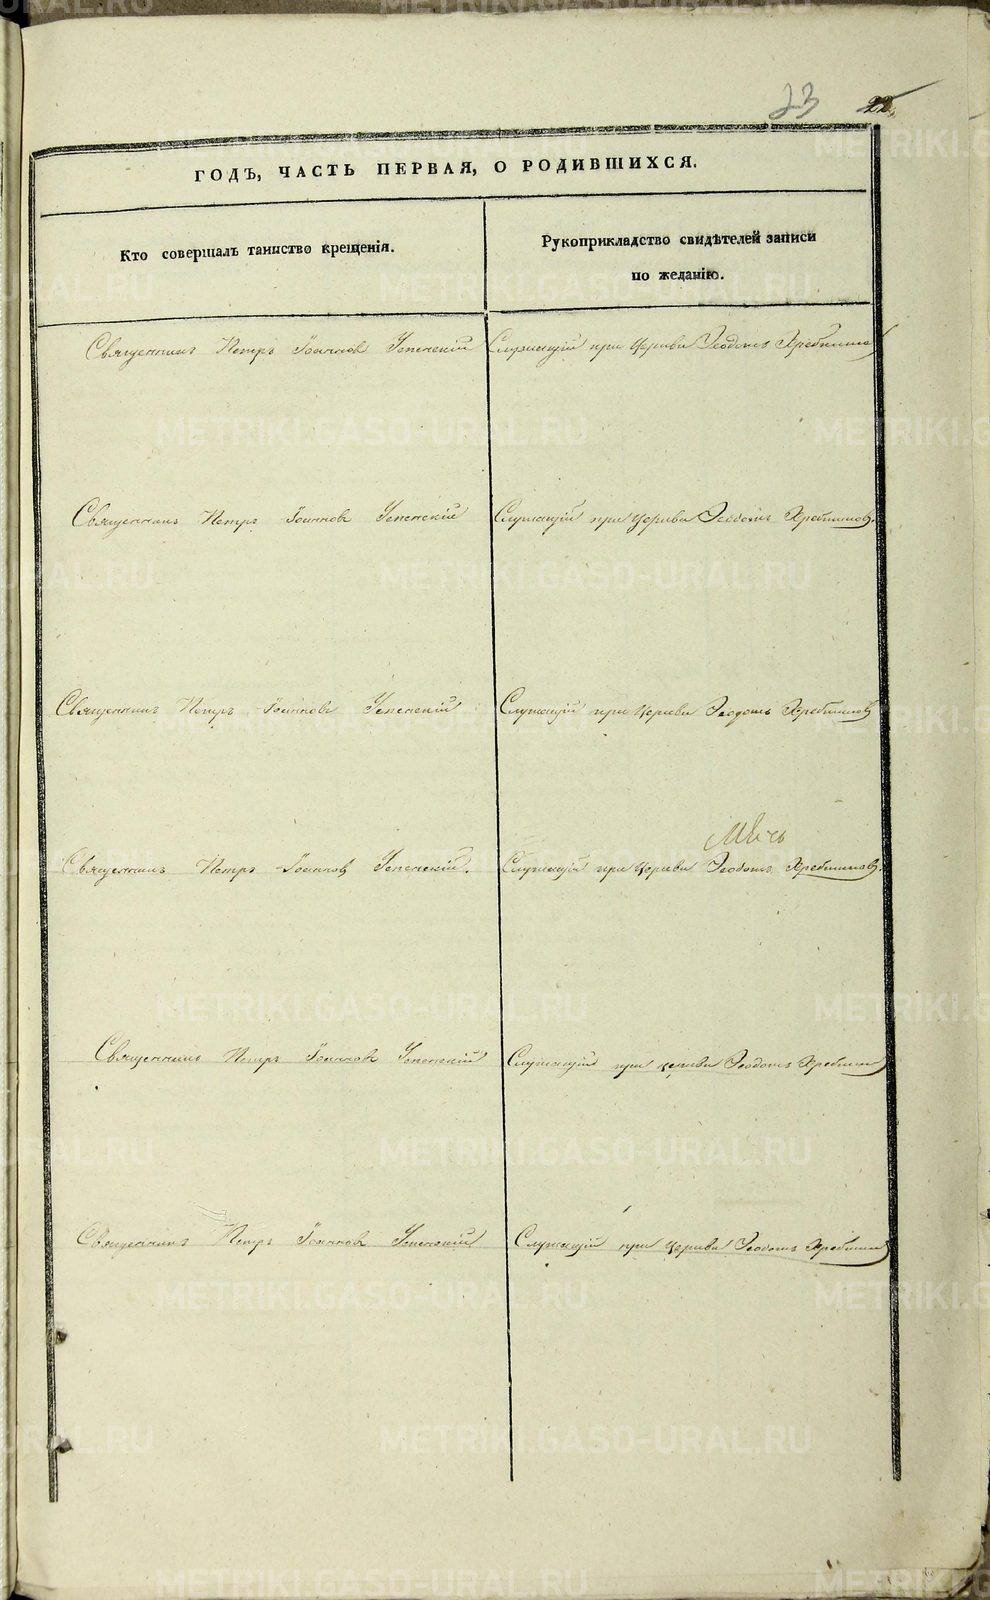 23 22.
ГОДЪ, ЧАСТЬ ПЕРВАЯ, О РОДИВШИХСЯ.
Кто совершалъ таинство крещенія.
Рукоприкладство свидѣтелей записи
по желанію.
Священникъ Петръ Іоанновъ Успенскій Служащій при Церкви Ѳеодотъ
Священникъ Петръ Іоанновъ Успенскій Служащій при Церкви Ѳеодотъ
Священникъ Петръ Іоанновъ Успенскій Служащій при Церкви Ѳеодотъ
Священникъ Петръ Іоанновъ Успенскій. Служащій при Церкви Ѳеодотъ
Священникъ Петръ Іоанновъ Успенскій Служащій при церкви Ѳеодотъ
Священникъ Петръ Іоанновъ Успенскій Служащій при Церкви Ѳеодотъ
METRIKI.GASO-URAL.RU